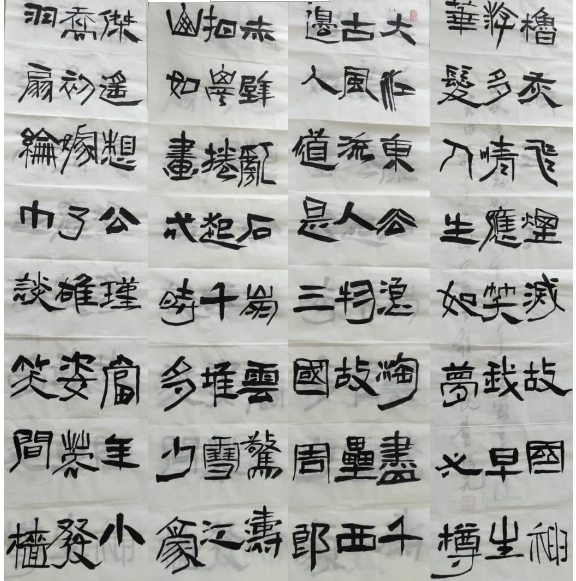 大江東去浪淘盡千
古風流人物故壘西
邊人道是三國周郎
赤壁亂石崩雲驚濤
拍岸捲起千堆雪江
山如畫弌時多少豪
傑遙想公瑾當年小
喬初嫁了雄姿英發
羽扇綸巾談笑間檣
櫓灰飛煙滅故國神
游多情應笑我早生
華髮人生如夢弌樽